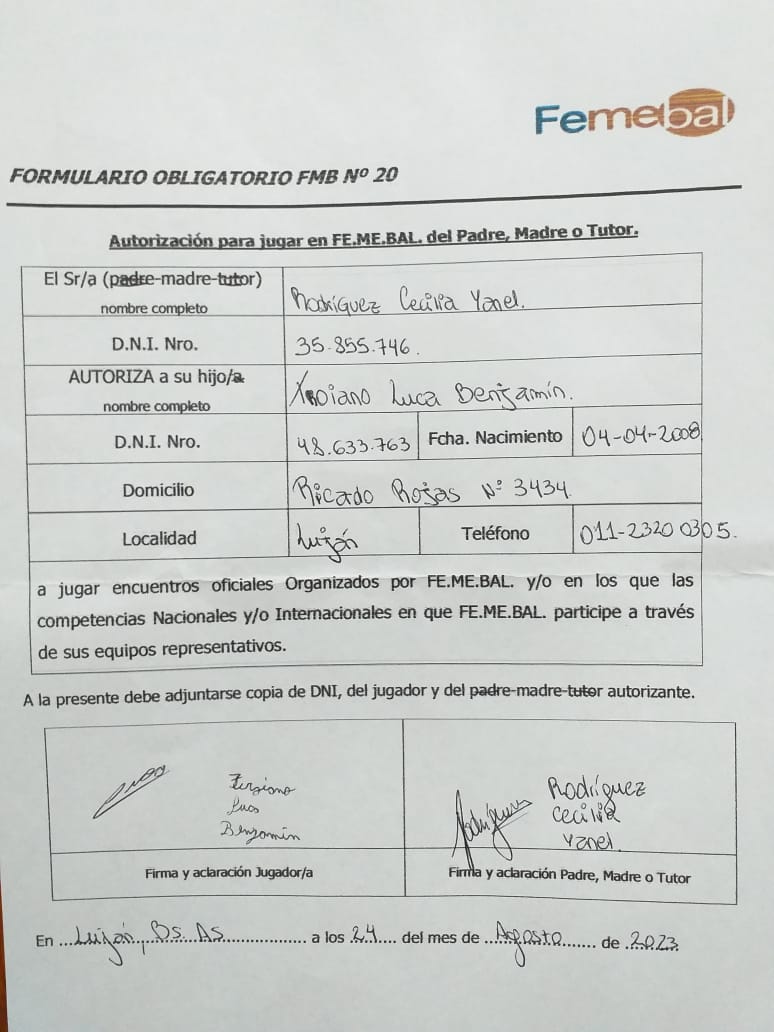 Femebal
FORMULARIO OBLIGATORIO FMB Nº 20
Autorización para jugar en FE.ME.BAL. del Padre, Madre o Tutor.
El Sr/a (padre-madre-tutor)
nombre completo
Rodríguez Cecilia Yanel.
D.N.I. Nro.
35.855.746.
AUTORIZA a su hijo/a
nombre completo
Luca Benjamín.
D.N.I. Nro.
48.633.763
Fcha. Nacimiento
04-04-2008
Domicilio
Ricardo Rojas Nº 3434.
Localidad
Luján
Teléfono
011-2320 0305.
a jugar encuentros oficiales Organizados por FE.ME.BAL. y/o en los que las
competencias Nacionales y/o Internacionales en que FE.ME.BAL. participe a través
de sus equipos representativos.
A la presente debe adjuntarse copia de DNI, del jugador y del padre-madre-tutor autorizante.
Luca
Benjamin
Rodríguez
Rodríguez
Cecilia
Yanel.
Firma y aclaración Jugador/a
Firma y aclaración Padre, Madre o Tutor
En Luján, Bs. As a los 24 del mes de Agosto de 2023